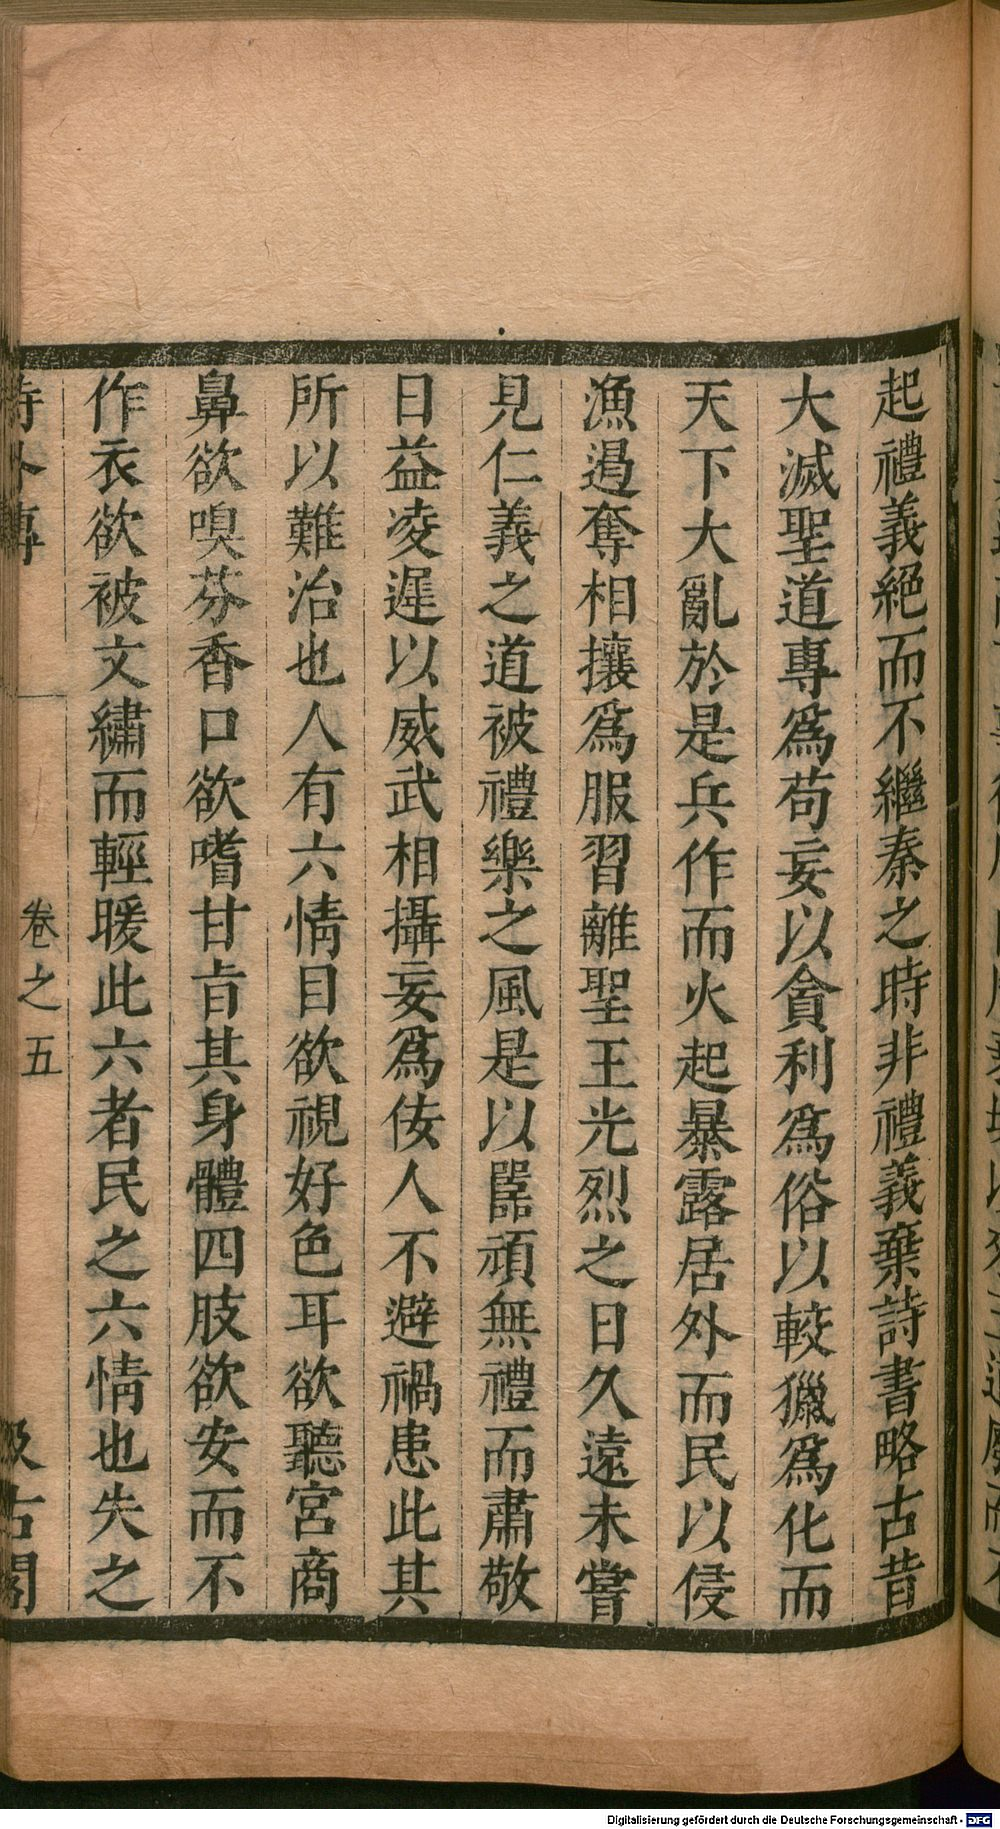 起禮義絕而不繼秦之時非禮義棄詩書略古昔
大滅聖道專爲苟妄以貪利爲俗以較獵爲化而
天下大亂於是兵作而火起暴露居外而民以侵
漁遏奪相攘爲服習離聖王光烈之日久遠未嘗
見仁義之道被禮樂之風是以嚚頑無禮而肅敬
日益凌遲以威武相攝妄爲佞人不避禍患此其
所以難治也人有六情目欲視好色耳欲聽宮商
鼻欲嗅芬香口欲嗜甘旨其身體四肢欲安而不
作衣欲被文繡而輕暖此六者民之六情也失之
詩外傳
卷之五
汲古閣
Digitalisierung gefördert durch die Deutsche Forschungsgemeinschaft - DFG